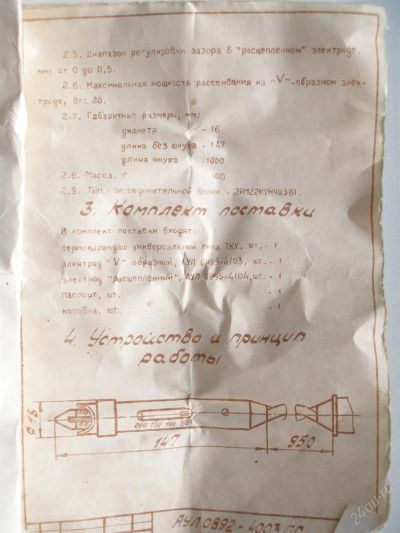 2.5. Диапазон регулировки зазора в "расщепленном" электроде,
мм: от 0 до 0,5.
2.6. Максимальная мощность рассеивания на "V"-образном элек-
троде, Вт: 20.
2.7. Габаритные размеры, мм:
диаметр - 16
длина без шнура - 147
длина шнура - 1000
2.8. Масса, г. 100
2.9. Тип присоединительной вилки -
3. Комплект поставки
В комплект поставки входят:
термокарандаш универсальный типа ТКУ, шт. - 1
электрод "V" образный, АУЛ 0895-4103, шт. - 1
электрод "расщепленный", АУЛ 0895-4104, шт. - 1
паспорт, шт. - 1
коробка, шт. - 1
4. Устройство и принцип
работы
200 150 100 50
147
950
АУЛ.0892-4003 ПС
24au.ru